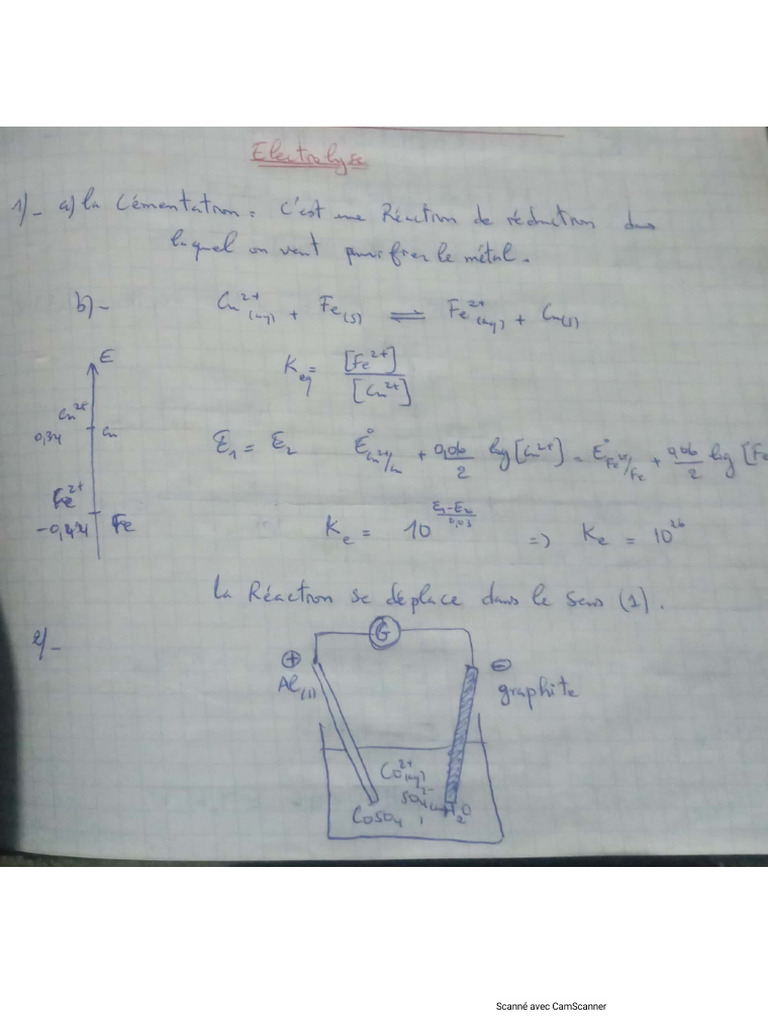 Electrolyse
1)- a) la Cémentation : c'est une Réaction de réduction dans
laquel on veut purifier le métal.
b)- Cu²⁺(aq) + Fe(s) ⇌ Fe²⁺(aq) + Cu(s)
Keq = [Fe²⁺] / [Cu²⁺]
E
Cu²⁺
0,34 Cu
Fe²⁺
-0,44 Fe
E₁ = E₂ E°Cu²⁺/Cu + 0,06/2 log [Cu²⁺] = E°Fe²⁺/Fe + 0,06/2 log [Fe
Ke = 10^(E₁-E₂/0,03) => Ke = 10²⁶
la Réaction se déplace dans le sens (1).
2)-
G
+ -
Al(s) graphite
Co²⁺(aq)
SO₄²⁻(aq) H₂O
CoSO₄
Scanné avec CamScanner